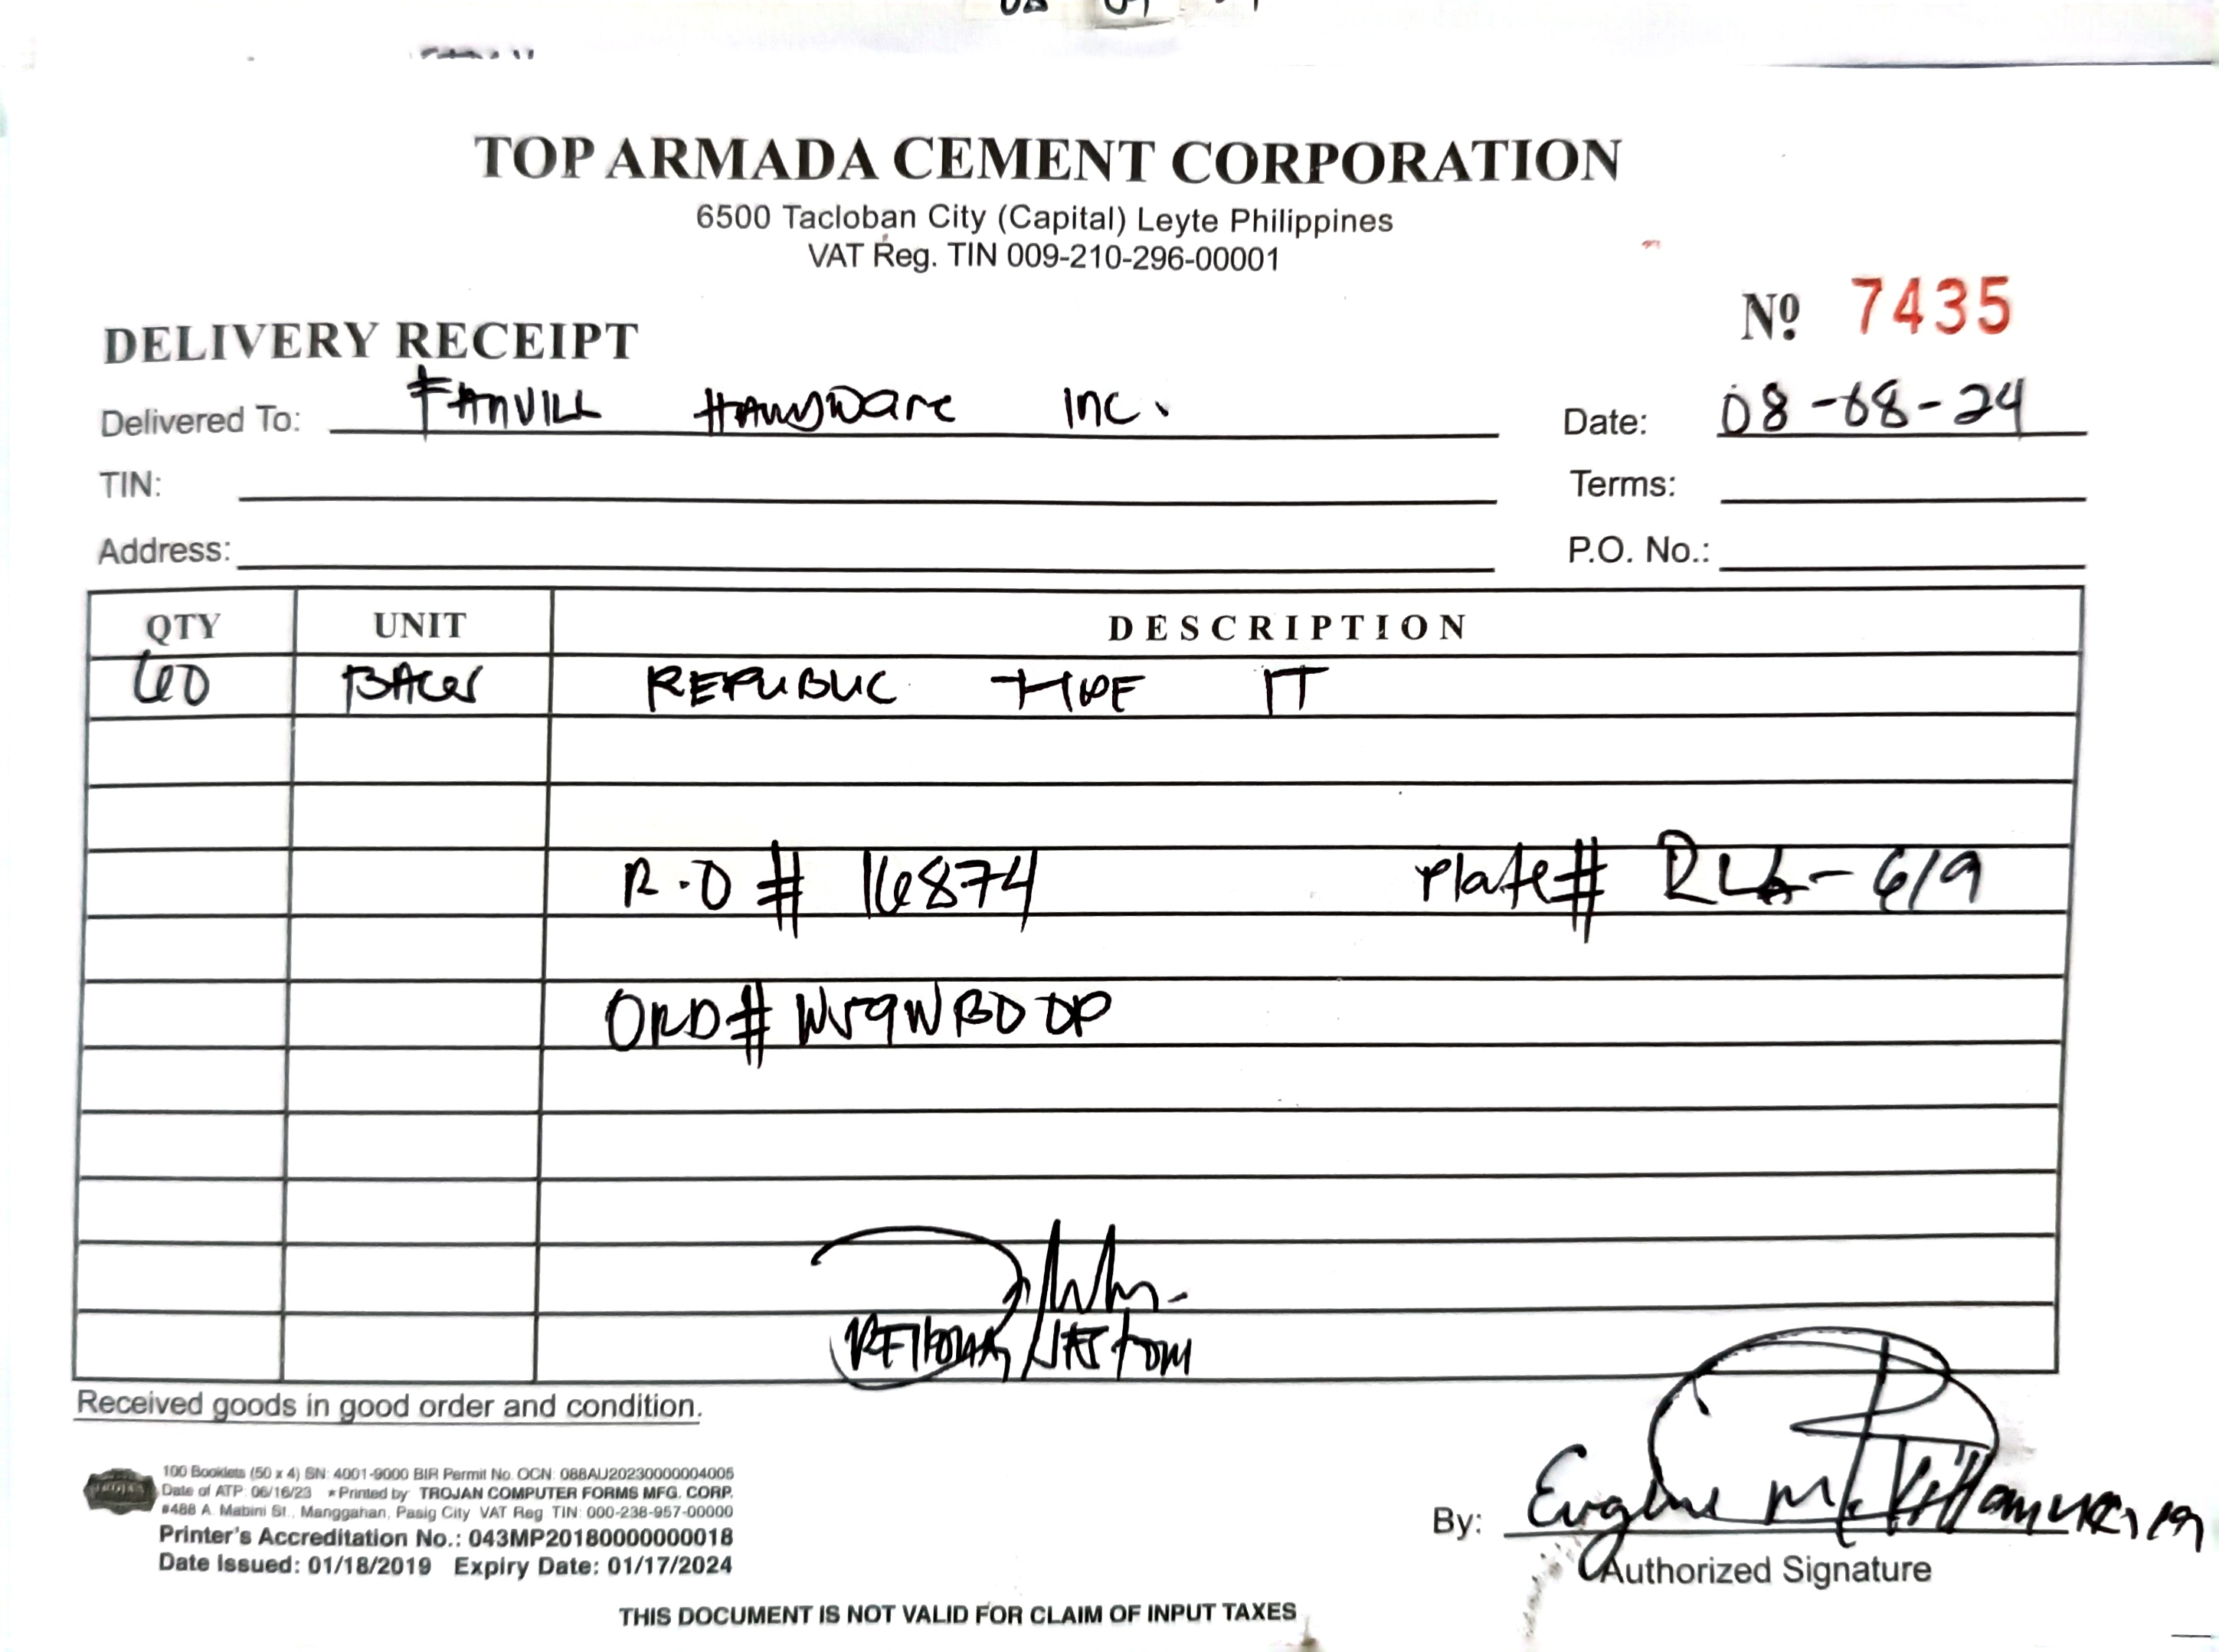 TOP ARMADA CEMENT CORPORATION
6500 Tacloban City (Capital) Leyte Philippines
VAT Reg. TIN 009-210-296-00001
Nº 7435
DELIVERY RECEIPT
Delivered To: FANVILL HARDWARE INC. Date: 08-08-24
TIN: Terms:
Address: P.O. No.:
QTY UNIT DESCRIPTION
60 BAGS REPUBLIC TYPE IT
R.O # 16874 Plate# RLA-619
ORD# W59WBDDP
Received goods in good order and condition.
100 Booklets (50 x 4) SN: 4001-9000 BIR Permit No. OCN: 088AU20230000004005
Date of ATP: 06/16/23 *Printed by: TROJAN COMPUTER FORMS MFG. CORP.
#488 A. Mabini St., Manggahan, Pasig City VAT Reg TIN: 000-238-957-00000
Printer's Accreditation No.: 043MP20180000000018
Date Issued: 01/18/2019 Expiry Date: 01/17/2024
By: Eugene M. Villamueria
Authorized Signature
THIS DOCUMENT IS NOT VALID FOR CLAIM OF INPUT TAXES